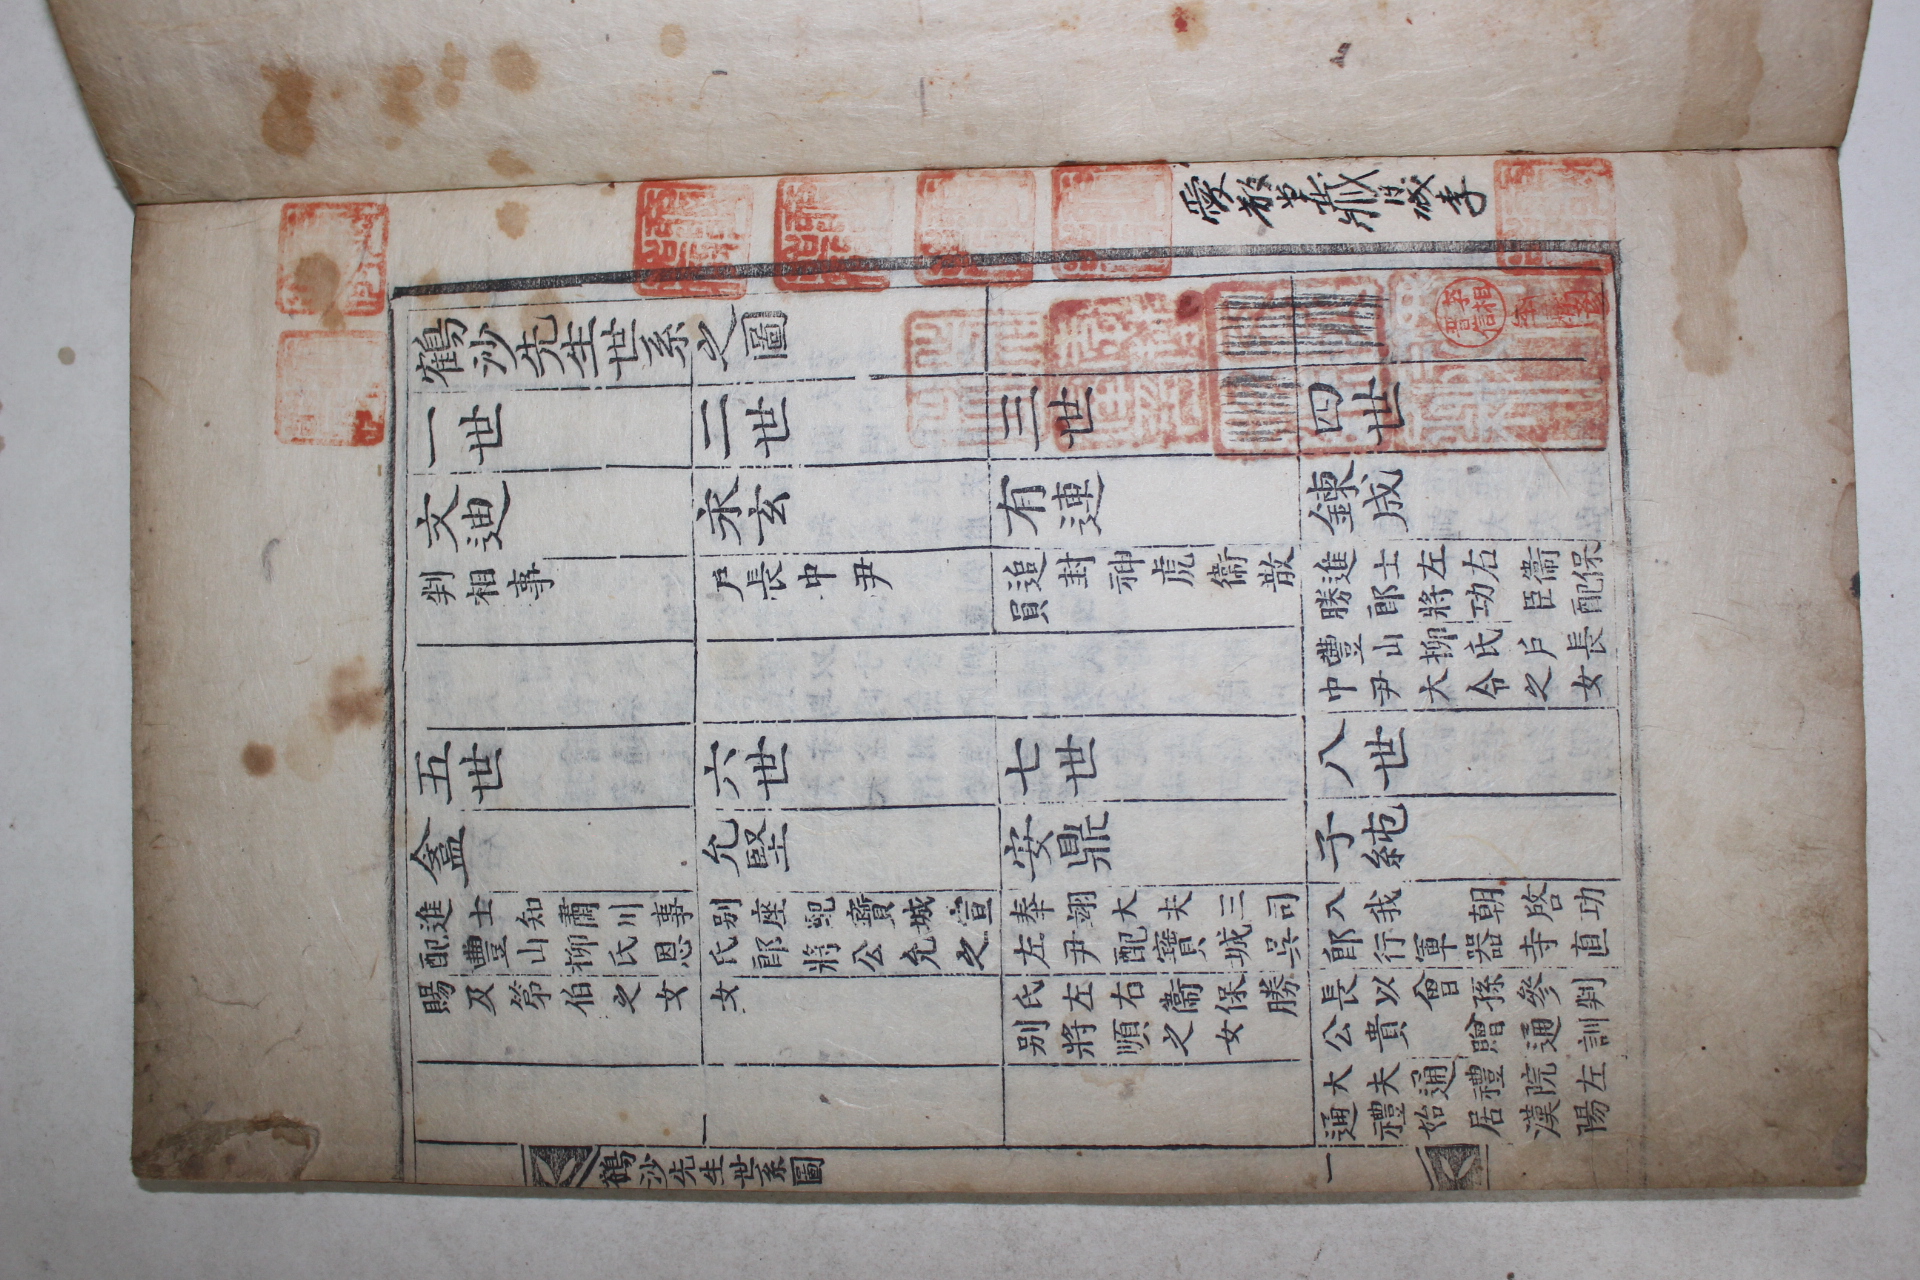 鶴沙先生世系之圖
一世
文迪
判相事
二世
永玄
戶長中尹
三世
有連
追封神虎衞散
員
四世
鍊成
進士左右衞保
勝郎將功臣配
豐山柳氏戶長
中尹大令之女
五世
盒
進士知肅川事
配豐山柳氏恩
賜及第伯之女
六世
允堅
別座配寶城宣
氏郎將公允之
女
七世
安鼎
奉翊大夫三司
左尹配寶城吳
氏左右衞保勝
別將順之女
八世
子純
入我 朝啓功
郎行軍器寺直
長以曾孫參判
公貴 贈通訓
大夫通禮院左
通禮始居漢陽
鶴沙先生世系圖
一